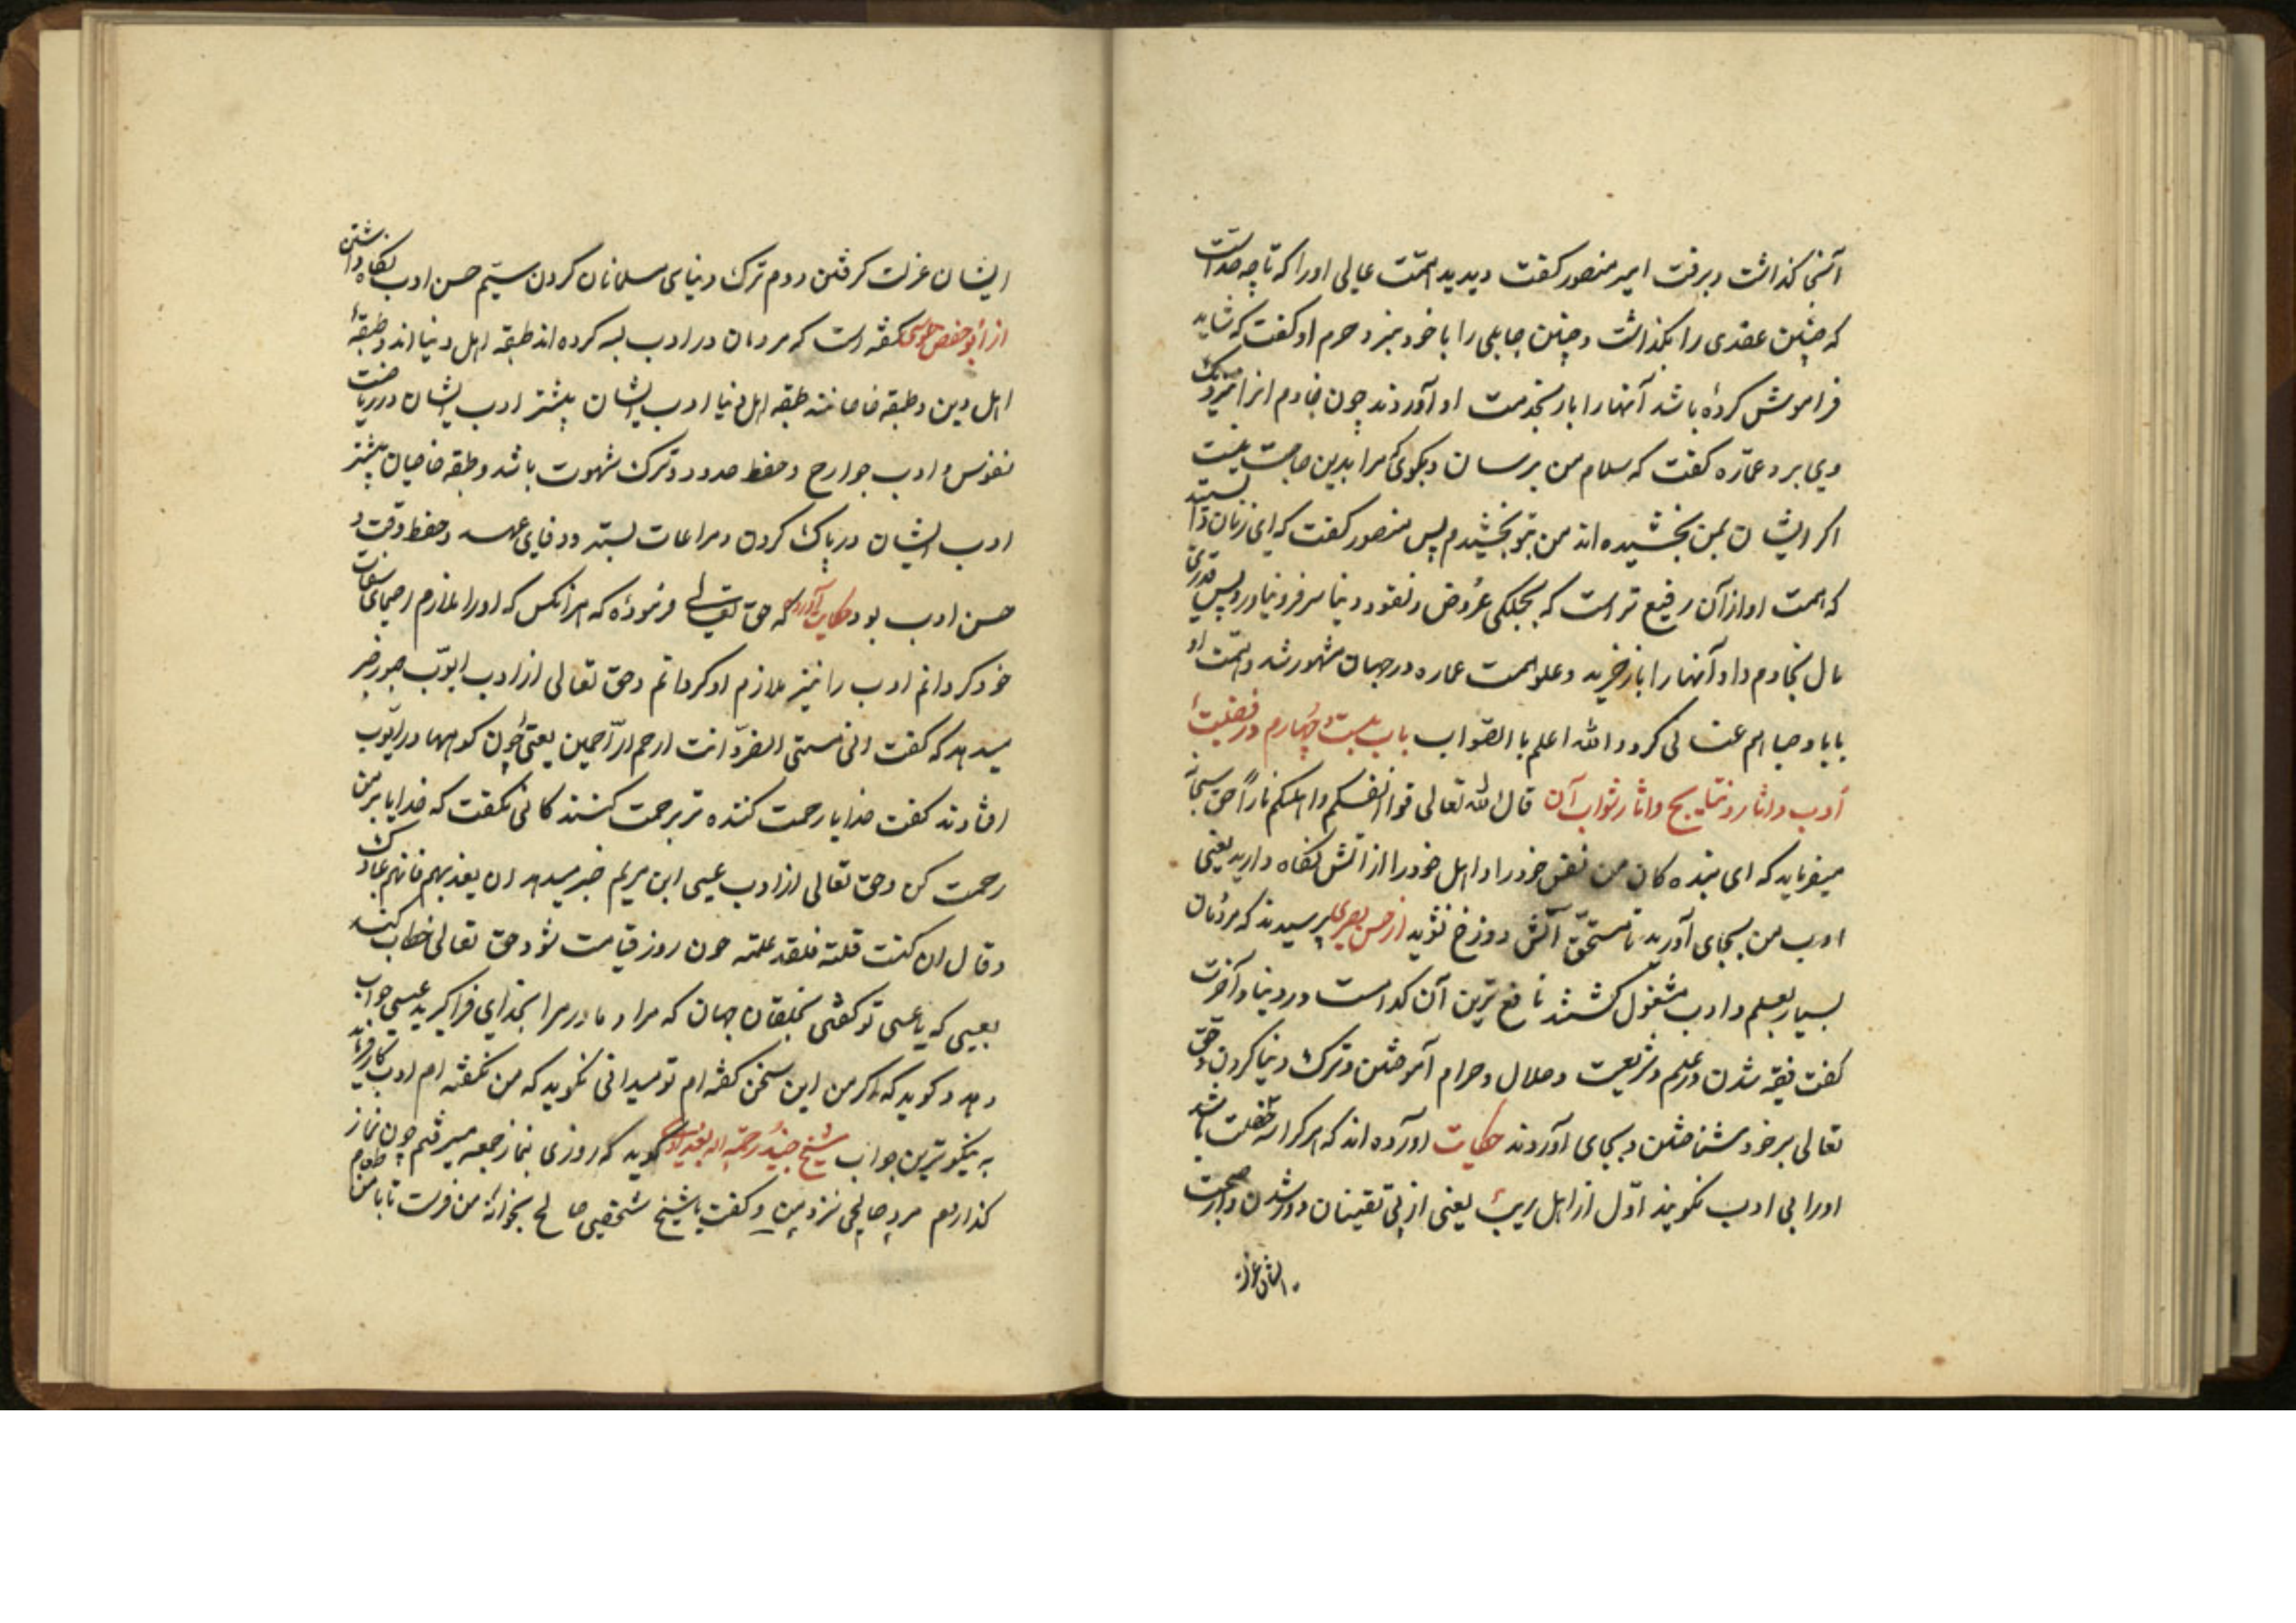 آنجا گذاشت و برفت امیر منصور گفت دیدید همت عالی او را که تا چه حد است
که چنین عقدی را بگذاشت و چنین جاهلی را با خود نبرد حرم او گفت که شاید
فراموش کرده باشد آنها را باز بخدمت او آوردند چون خادم انرا نزدیک
وی برد عماره گفت که سلام من برسان و بگوی که مرا بدین حاجت نیست
اکر ایشان بمن بخشیده اند من بتو بخشیدم پس منصور گفت که ای زنان دانستید
که همت او از آن رفیع تر است که بجملکی عروض و نقود دنیا سر فرو نیاورد پس قدری
مال بخادم داد و آنها را باز خرید و علو همت عماره در جهان مشهور شد و همت او
بابا و صبا هم عنانی کرد والله اعلم با الصواب باب بیست و چهارم در فضیلت
ادب و اثار و نتایج و اثار ثواب آن قال الله تعالی قوا انفسکم و اهلیکم ناراً حق سبحانه
میفرماید که ای بنده کان من نفس خود را و اهل خود را از اتش نکاه دارید یعنی
ادب من بجای آورید تا مستحق آتش دوزخ نشوید از حسن بصری پرسیدند که مردمان
بسیار بعلم و ادب مشغول گشتند نافع ترین آن کدامست در دنیا و آخرت
گفت فقیه شدن در علم و شریعت و حلال و حرام آموختن و ترک دنیا کردن و حق
تعالی بر خود شناختن و بجای آوردند حکایت اورده اند که هر کرا سه خصلت باشد
اورا بی ادب نکویند اول از اهل ریب یعنی از بی یقینان دور شدن و از صحبت
ایشان عزلت
ایشان عزلت گرفتن دوم ترک دنیای مسلمانان کردن سیم حسن ادب نکاه داشتن
از ابو حفص طوسی گفته است که مردمان در ادب سه کرده اند طبقه اهل دنیا اند و طبقه
اهل دین و طبقه خاصانند طبقه اهل دنیا ادب ایشان بیشتر ادب ایشان در ریاضت
نفوس و ادب جوارح و حفظ حدود و ترک شهوت باشد و طبقه خاصان بیشتر
ادب ایشان در پاک کردن و مراعات بستر و وفای عهد و حفظ وقت و
حسن ادب بود حکایت آورده که حق تعالی فرموده که هر انکس که اورا ملازم اسمای صفات
خود کردانم ادب را نیز ملازم او کردانم و حق تعالی از ادب ایوب صبور خبر
میدهد که گفت انی مسنی الضر و انت ارحم الرّاحمین یعنی چون کرمها در ایوب
افتادند گفت خدایا رحمت کننده تر برحمت کنندکانی نگفت که خدایا بر من
رحمت کن و حق تعالی از ادب عیسی ابن مریم خبر میدهد ان یعذبهم فانهم عبادک
و قال ان کنت قلته فلقد علمته چون روز قیامت شود حق تعالی خطاب کند
بعیسی که یا عیسی تو گفتی بخلقان جهان که مرا و مادر مرا بخدای فرا گیرید عیسی جواب
دهد و کوید که اکر من این سخن گفته ام تو میدانی نکوید که من نگفته ام ادب کار فرماید
به نیکوترین جواب شیخ جنید رحمه الله بغدادی گوید که روزی بنماز جمعه میرفتم چون نماز
گذاردم مرد صالحی نزد من و گفت یا شیخ شخصی صالح بخوانه من فرست تا با من طعام